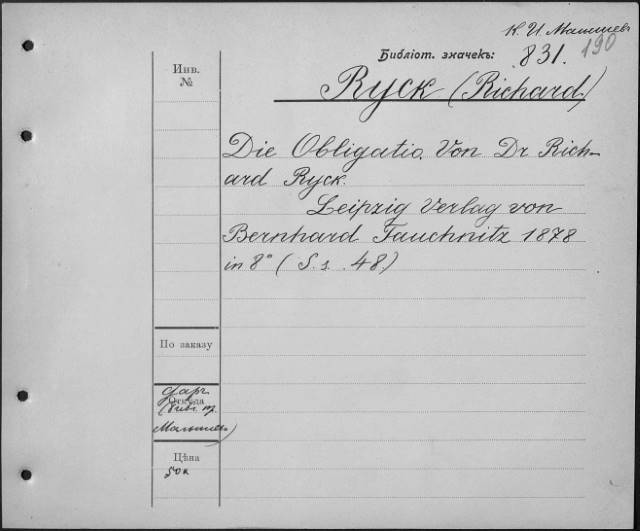 К. И. Малышев
190
Библіот. значекъ: 831.
Инв.
№
Ryck (Richard)
Die Obligatio. Von Dr Rich-
ard Ryck.
Leipzig Verlag von
Bernhard Tauchnitz 1878
in 8° (S. 1. 48)
По заказу
Даръ
Откуда
Малышев)
Цѣна
50к